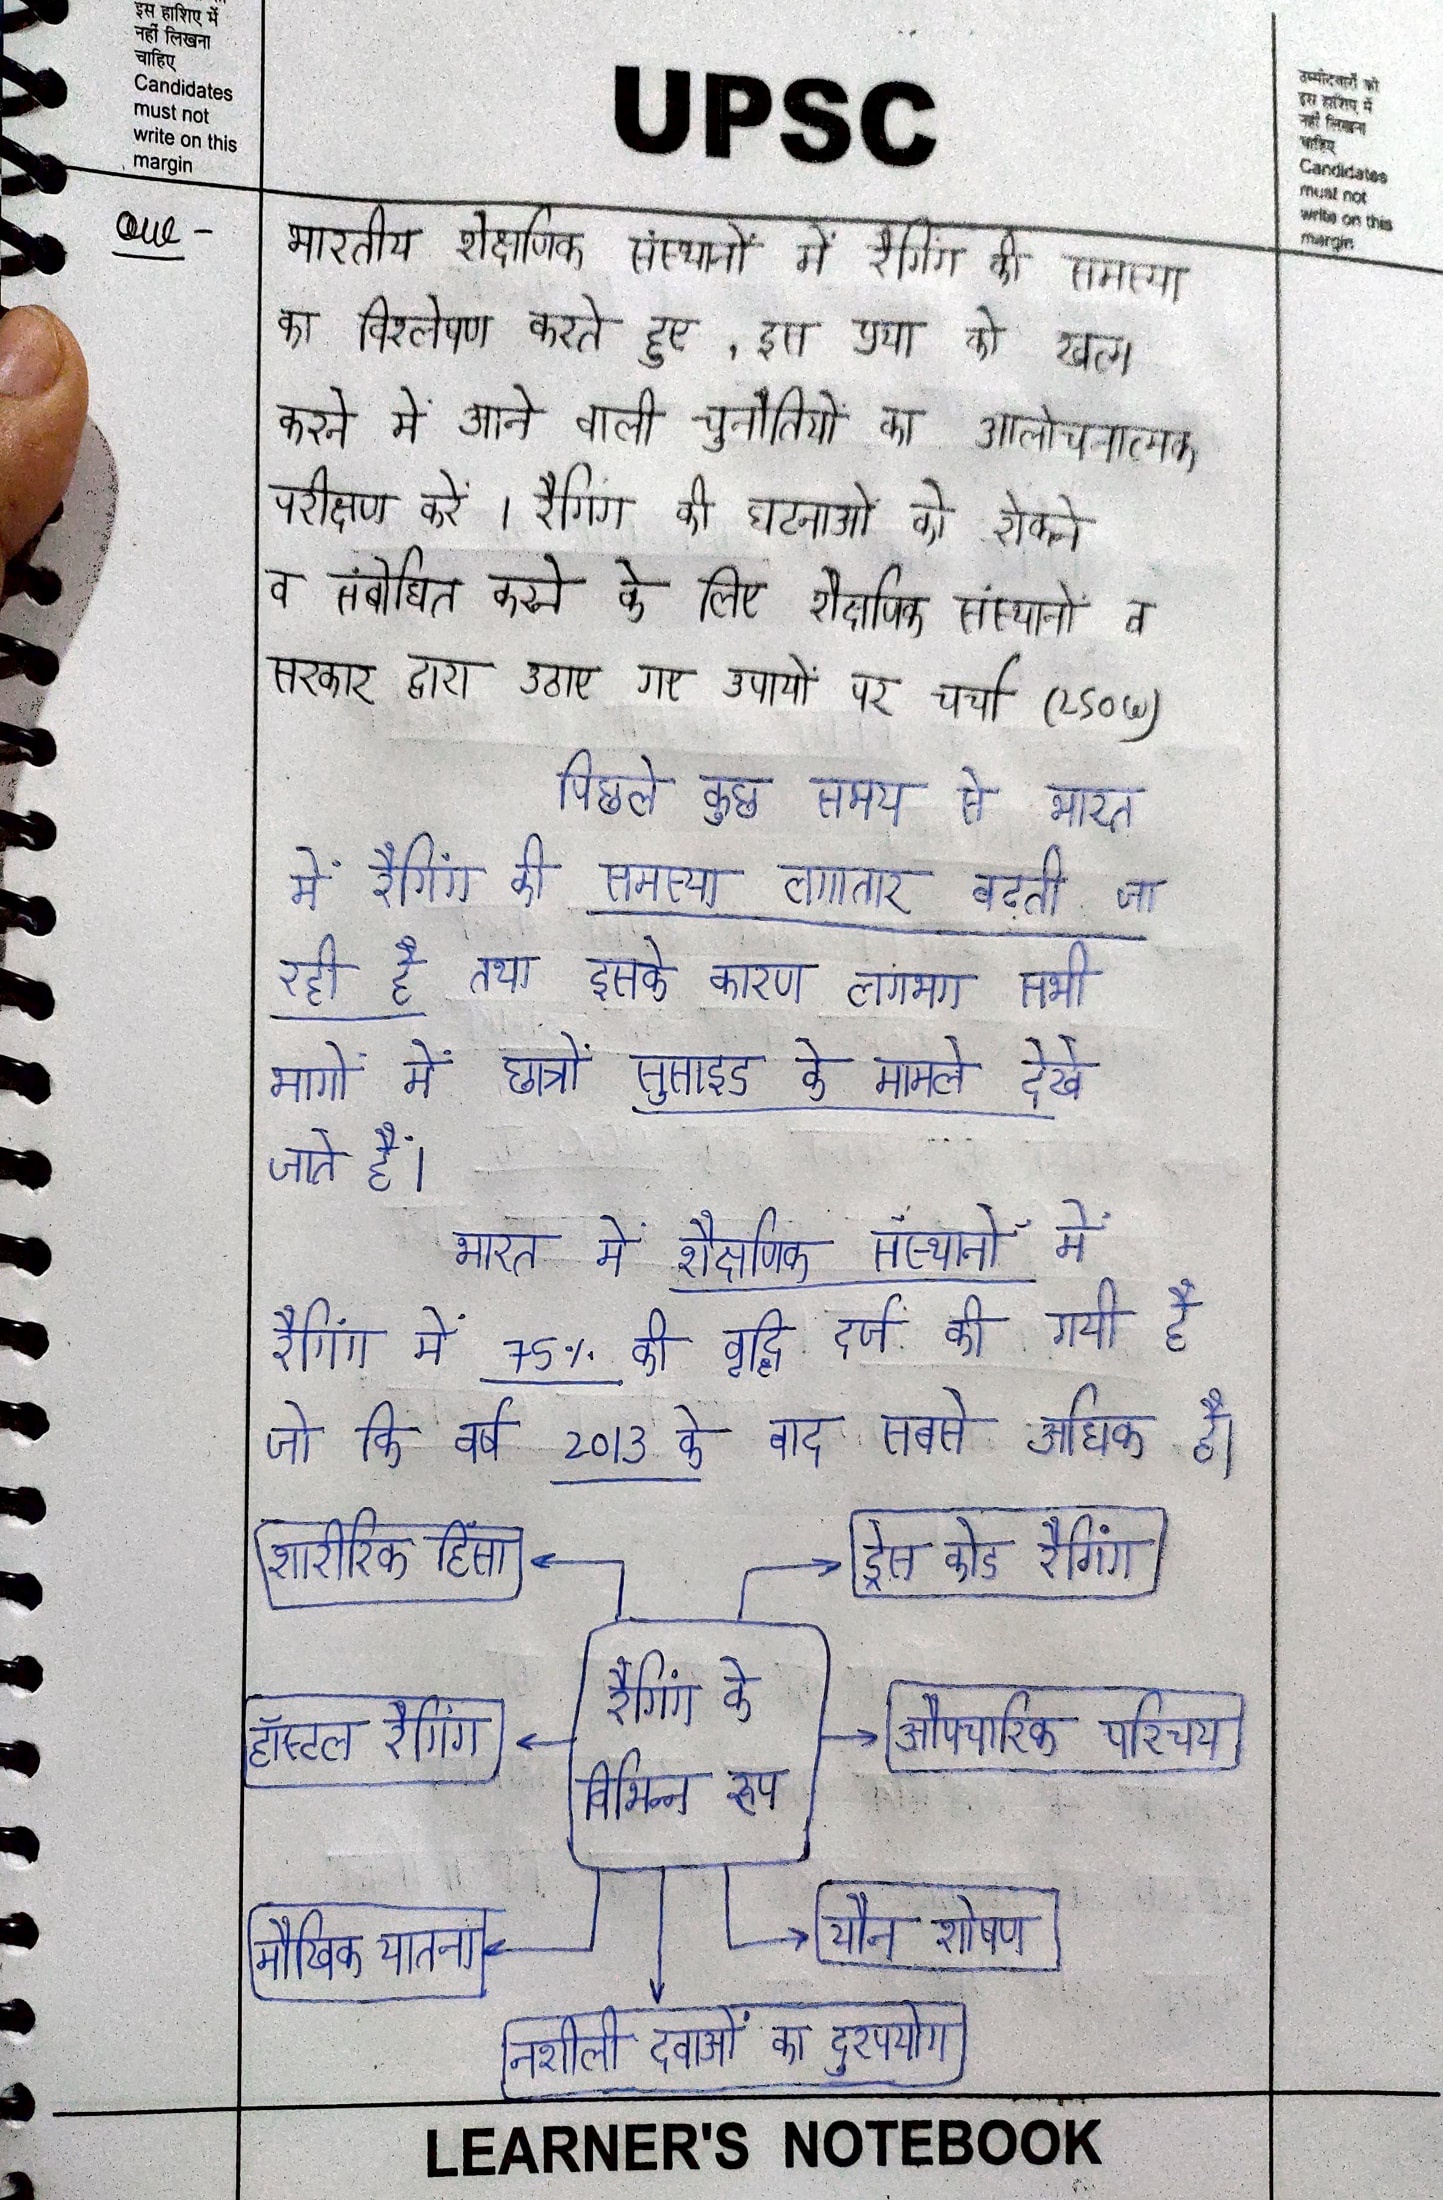 इस हाशिए में
नहीं लिखना
चाहिए
Candidates
must not
write on this
margin
UPSC
उम्मीदवारों को
इस हाशिए में
नहीं लिखना
चाहिए
Candidates
must not
write on this
margin
Que -
भारतीय शैक्षणिक संस्थानों में रैगिंग की समस्या
का विश्लेषण करते हुए, इस प्रथा को खत्म
करने में आने वाली चुनौतियों का आलोचनात्मक
परीक्षण करें । रैगिंग की घटनाओं को रोकने
व संबोधित करने के लिए शैक्षणिक संस्थानों व
सरकार द्वारा उठाए गए उपायों पर चर्चा (250W)
पिछले कुछ समय से भारत
में रैगिंग की समस्या लगातार बढ़ती जा
रही है तथा इसके कारण लगभग सभी
भागों में छात्रों सुसाइड के मामले देखे
जाते हैं।
भारत में शैक्षणिक संस्थानों में
रैगिंग में 75% की वृद्धि दर्ज की गयी है
जो कि वर्ष 2013 के बाद सबसे अधिक है।
शारीरिक हिंसा
ड्रेस कोड रैगिंग
रैगिंग के
विभिन्न रूप
हॉस्टल रैगिंग
औपचारिक परिचय
मौखिक यातना
यौन शोषण
नशीली दवाओं का दुरपयोग
LEARNER'S NOTEBOOK